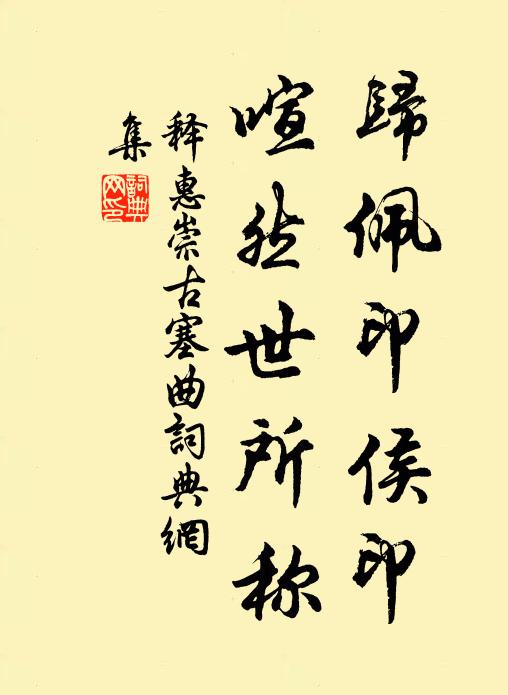 歸佩印侯印
喧然世所称
释惠崇古塞曲詞典網
集
詞典
网印